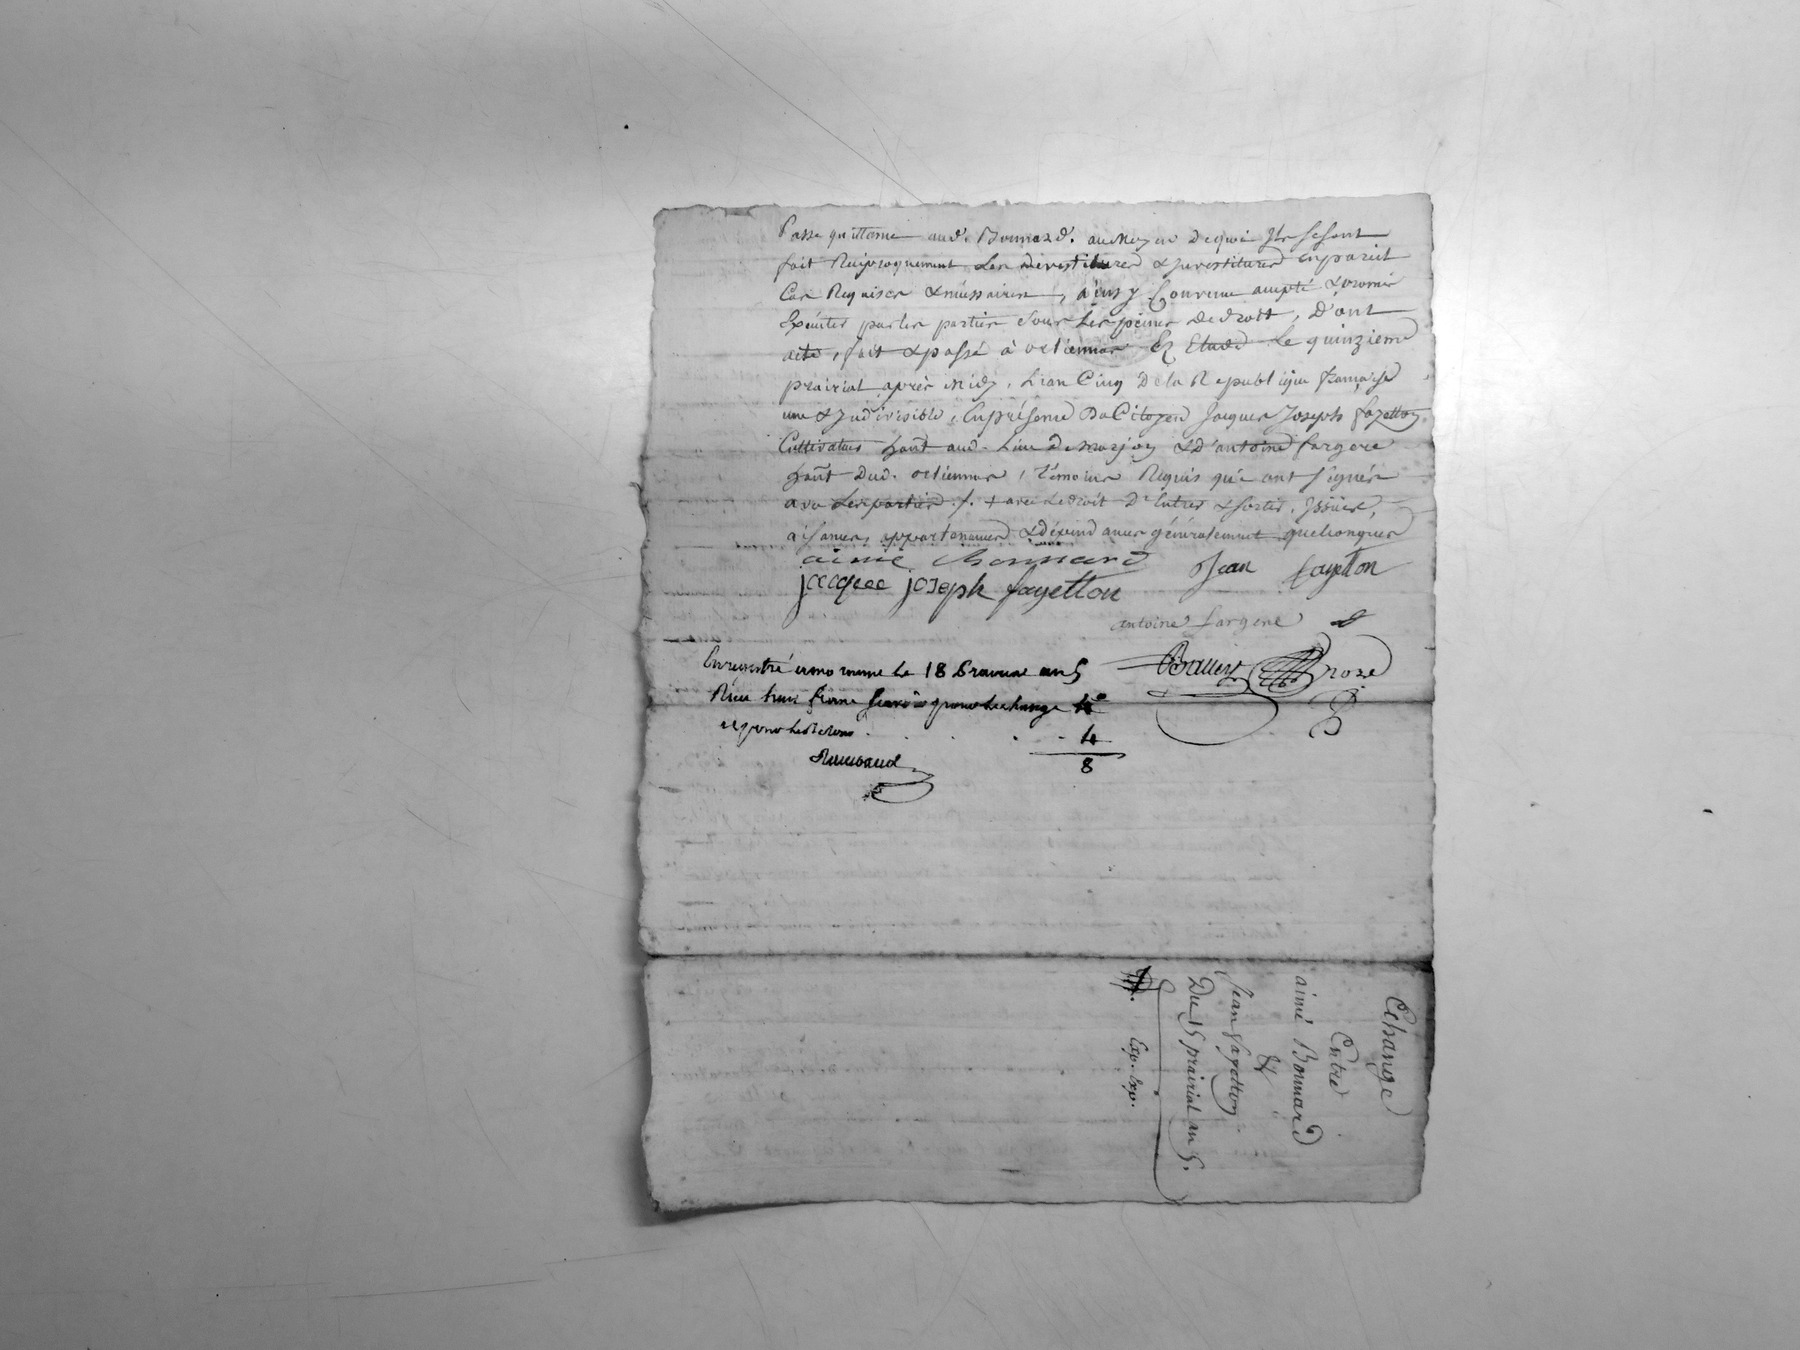 Passe quittance aud. Bonnard. au moyen dequoi Ils se sont
fait Reciproquement Les devestitures & Investitures en pareil
Cas Requises & néessaires, ainsy Convenu accepté & promis
Executer par les parties sous les peines de droit, D'ont
acte, fait & passé à Estude Le quinzieme
prairial après midy, L'an Cinq De la Republique française
une & Indivisible, En présence Du Citoyen Jacques Joseph fayetton
Cultivateur hant aud. Lieu de & d'antoine fargere
hant Dud. témoins Requis qui ont signés
avec Les parties ./. + avec Le droit D'Entrer & sortir, Issües,
aisances, appartenances & dépendances généralement quelconques
aimé bonnard
Jean fayetton
jacque joseph fayetton
antoine fargere
Enregistré le 18 Prairial an 5
Reçu francs pour Lechange 4
et pour 4
8
Echange
Entre
aimé Bonnard
&
Jean fayetton
Du 15 prairial an 5.
Exp. Exp.